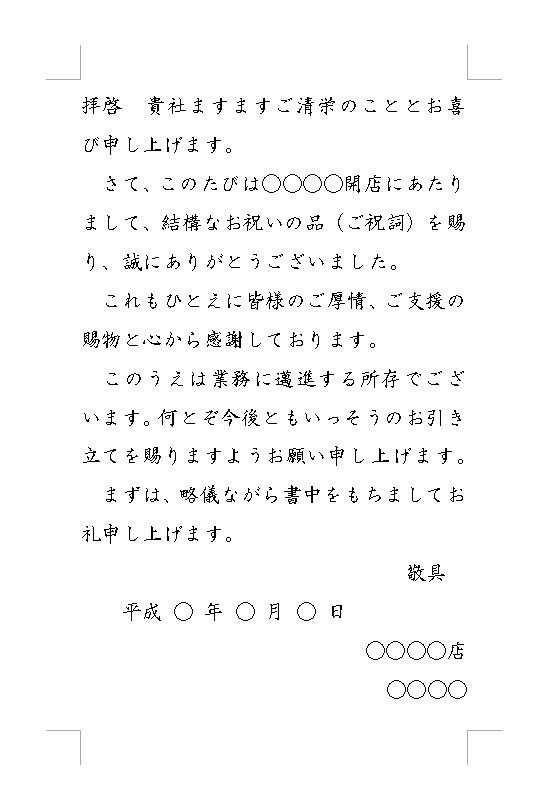 拝啓　貴社ますますご清栄のこととお喜
び申し上げます。
　さて、このたびは○○○○開店にあたり
まして、結構なお祝いの品（ご祝詞）を賜
り、誠にありがとうございました。
　これもひとえに皆様のご厚情、ご支援の
賜物と心から感謝しております。
　このうえは業務に邁進する所存でござ
います。何とぞ今後ともいっそうのお引き
立てを賜りますようお願い申し上げます。
　まずは、略儀ながら書中をもちましてお
礼申し上げます。
敬具
平成 ○ 年 ○ 月 ○ 日
○○○○店
○○○○